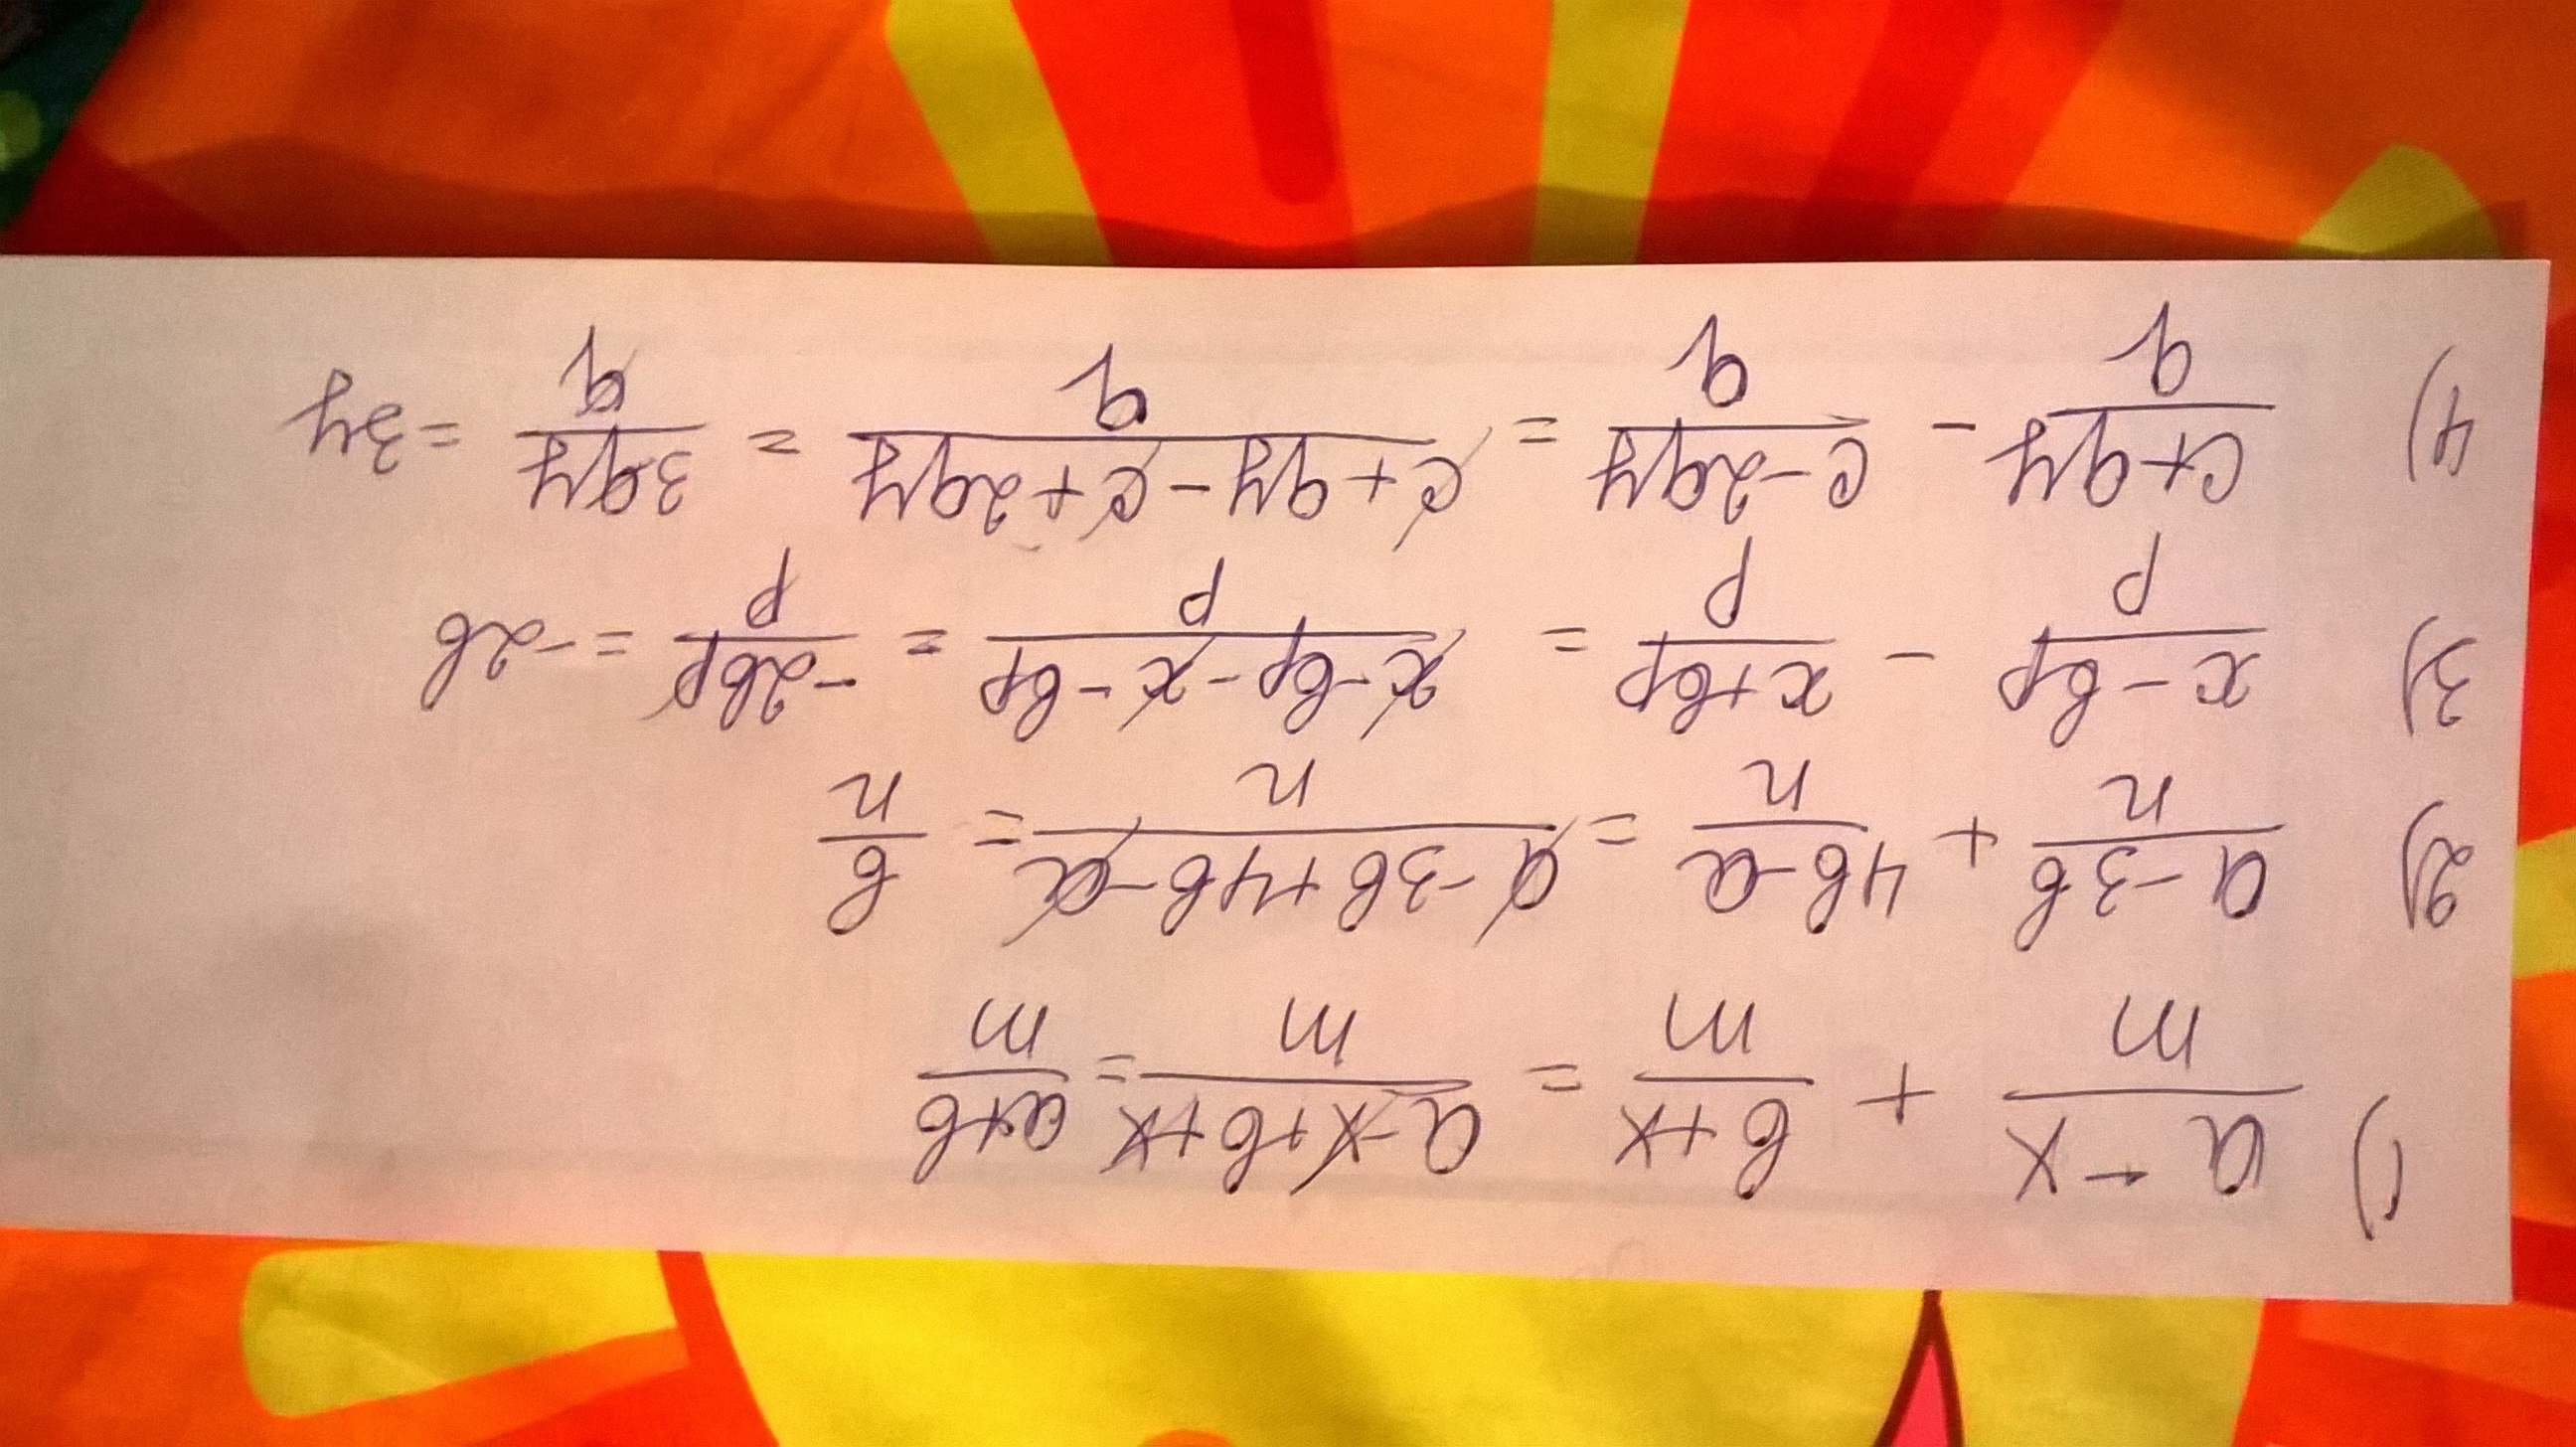 1) (a-x)/m + (b+x)/m = (a-x+b+x)/m = (a+b)/m
2) (a-3b)/n + (4b-a)/n = (a-3b+4b-a)/n = b/n
3) (x-bp)/p - (x+bp)/p = (x-bp-x-bp)/p = (-2bp)/p = -2b
4) (c+qy)/q - (c-2qy)/q = (c+qy-c+2qy)/q = (3qy)/q = 3y